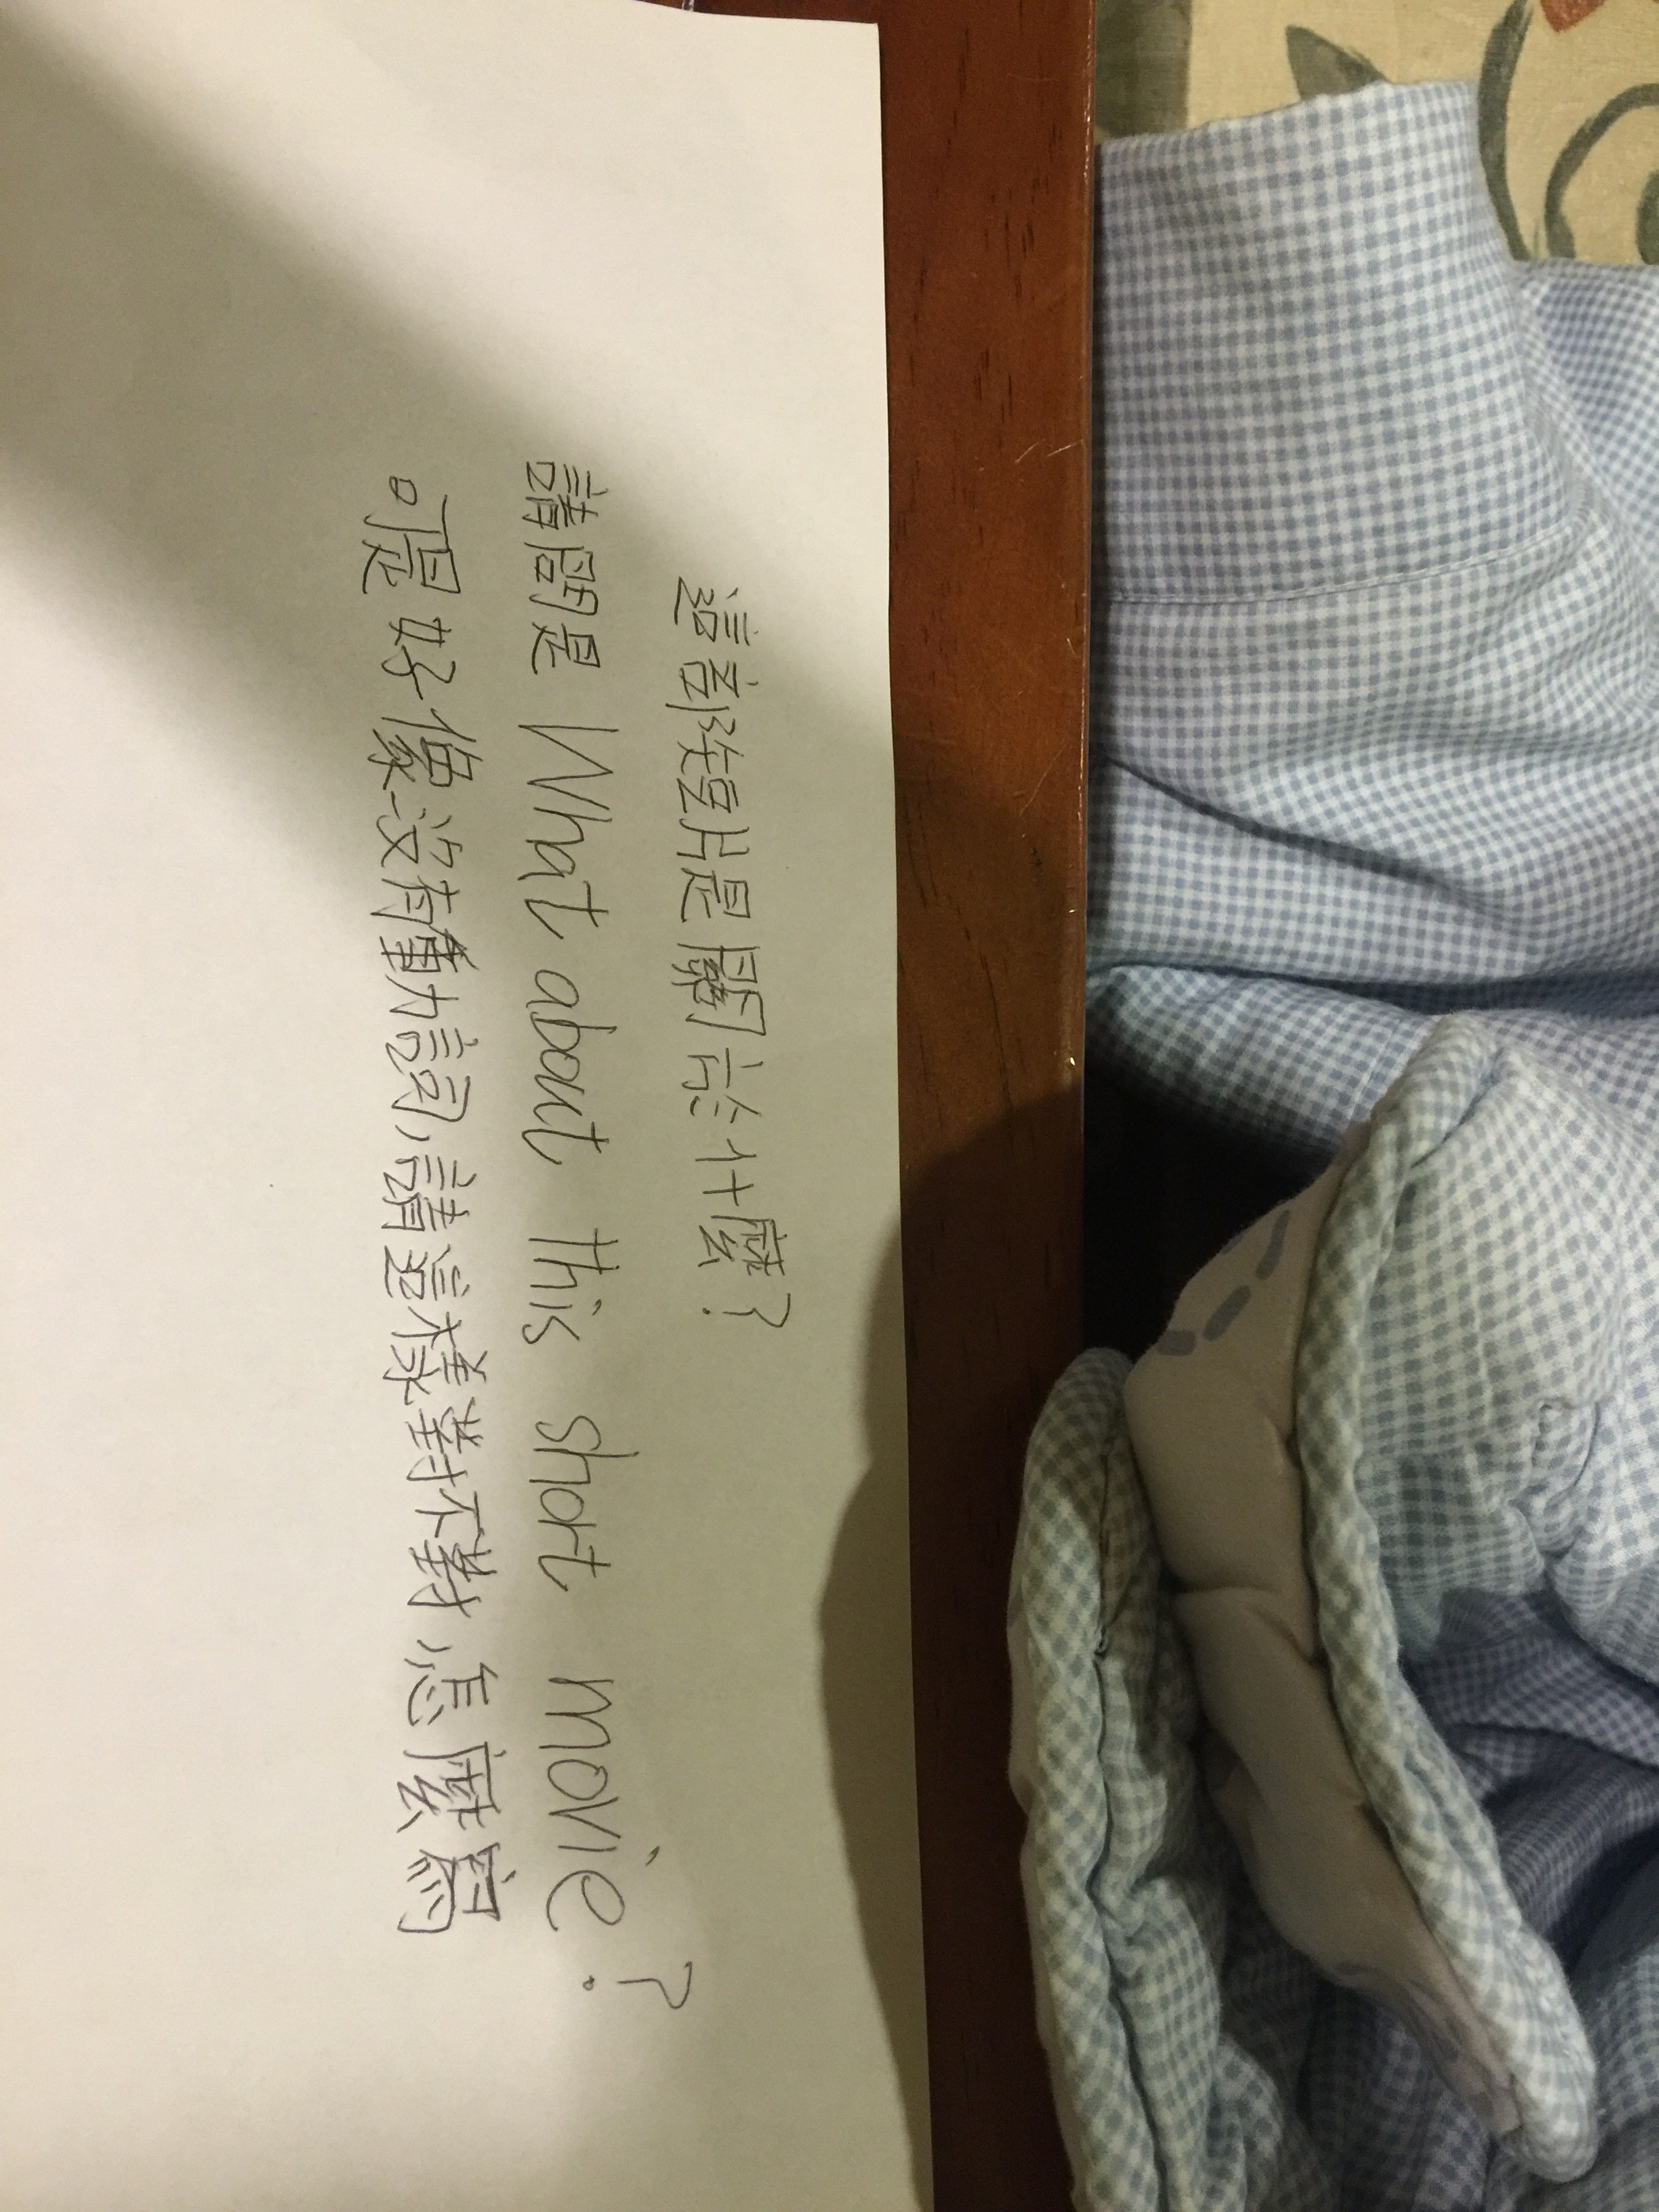 這部短片是關於什麼?
請問是 What about this short movie?
可是好像沒有動詞,請這樣對不對,怎麼寫